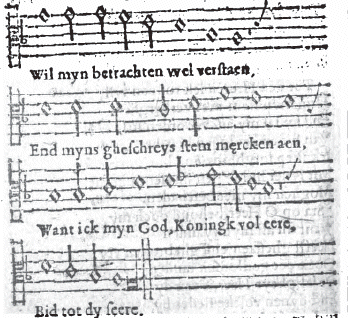 Wil myn betrachten wel verstaen,
End myns gheschreys stem mercken aen,
Want ick myn God, Koningk vol eere,
Bid tot dy seere.